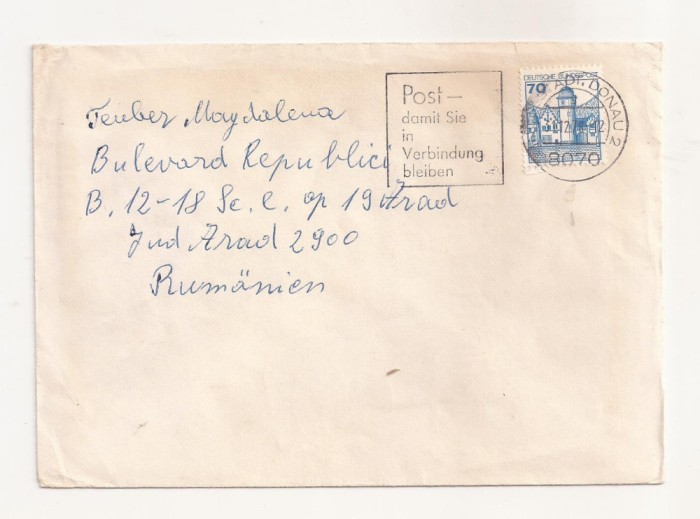 Teuber Magdalena
Bulevard Republici
B. 12-18 Sc. C. ap 19 Arad
Jud Arad 2900
Rumänien
Post —
damit Sie
in
Verbindung
bleiben
DEUTSCHE BUNDESPOST
70
DONAU 2
8070